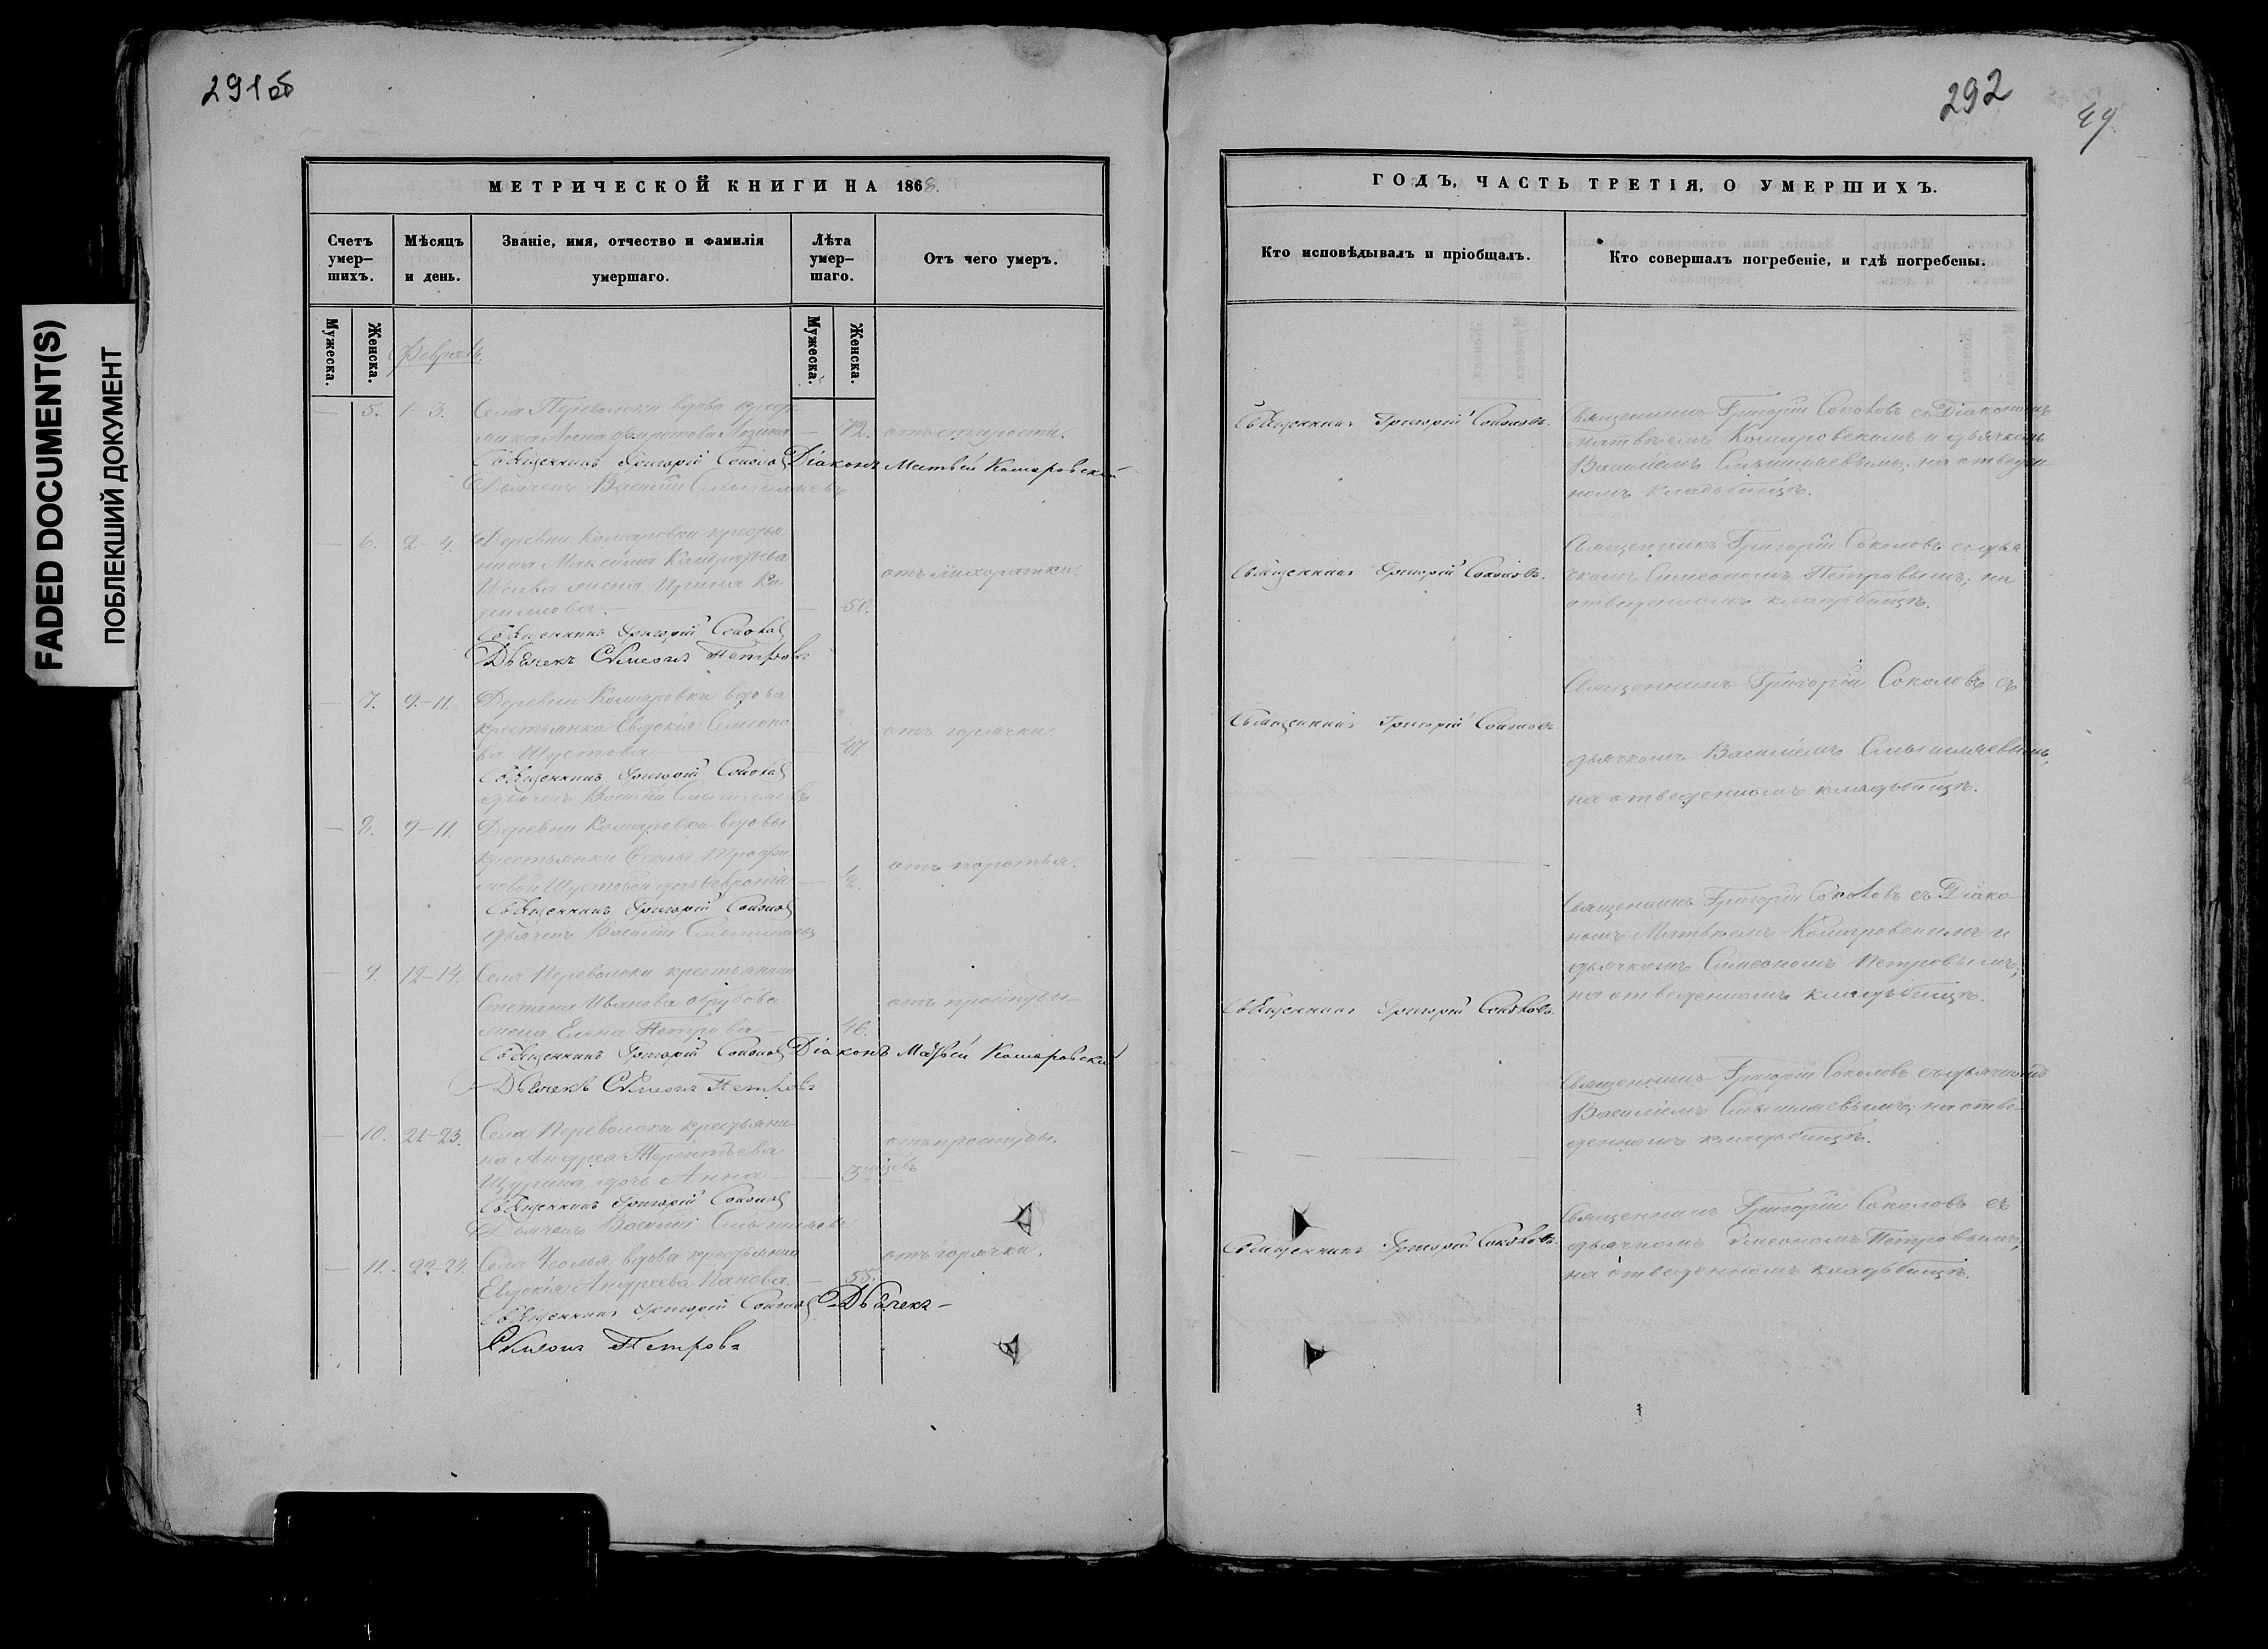 291об
292
49
FADED DOCUMENT(S)
ПОБЛЕКШИЙ ДОКУМЕНТ
МЕТРИЧЕСКОЙ КНИГИ НА 1868.
Счетъ умер-шихъ.
Мѣсяцъ и день.
Званіе, имя, отчество и фамилія умершаго.
Лѣта умер-шаго.
Отъ чего умеръ.
Мужеска.
Женска.
Мужеска.
Женска.
Февраль.
5. 1-3. Села Переволоки вдова
Анна 72. отъ старости.
Священникъ Григорій Соколов Діаконъ Матвѣй Комаровскій
Дьячекъ Василій Смышляевъ
6. 2-4. Деревни Комаровки крестья
нина Максима
жена Ирина Ки отъ лихоратки.
рилловa. 50.
Священникъ Григорій Соколов
Дьячекъ Сѵмеонъ Петровъ
7. 9-11. Деревни Комаровки вдова
крестьянка Евдокія Симеоно отъ горячки.
ва Шустова 47.
Священникъ Григорій Соколов
дьячекъ Василій Смышляевъ
8. 9-11. Деревни Комаровки вдовы
крестьянки Ѳеклы Трофи
мовой Шустовой дочь Февронія 1/2.
Священникъ Григорій Соколов
дьячекъ Василій Смышляевъ
9. 12-14. Села Переволоки крестьянина
Степана Иванова отъ простуды
жена Елена Петрова 46.
Священникъ Григорій Соколов Діаконъ Матвѣй Комаровскій
Дьячекъ Сѵмеонъ Петровъ
10. 21-23. Села Переволоки крестьяни
на Андрея Терентьева отъ простуды.
дочь Анна 3
Священникъ Григорій Соколов
Дьячекъ Василій Смышляевъ
11. 22-24. Села Усолья вдова отъ горячки.
Евдокія Андреева Панова. 55.
Священникъ Григорій Соколов Дьячекъ
Сѵмеонъ Петровъ
ГОДЪ, ЧАСТЬ ТРЕТІЯ, О УМЕРШИХЪ.
Кто исповѣдывалъ и пріобщалъ.
Кто совершалъ погребеніе, и гдѣ погребены.
Священникъ Григорій Соколовъ.
Священникъ Григорій Соколовъ съ Діакономъ
Матвѣемъ Комаровскимъ и дьячкомъ
Василіемъ Смышляевымъ; на отведен
номъ кладбищѣ.
Священникъ Григорій Соколовъ.
Священникъ Григорій Соколовъ съ дья
чкомъ Симеономъ Петровымъ; на
отведенномъ кладбищѣ.
Священникъ Григорій Соколовъ
Священникъ Григорій Соколовъ съ
дьячкомъ Василіемъ Смышляевымъ,
на отведенномъ кладбищѣ.
Священникъ Григорій Соколовъ съ Діако
номъ Матвѣемъ Комаровскимъ и
дьячкомъ Симеономъ Петровымъ;
на отведенномъ кладбищѣ.
Священникъ Григорій Соколовъ.
Священникъ Григорій Соколовъ съ дьячкомъ
Василіемъ Смышляевымъ; на отве
денномъ кладбищѣ.
Священникъ Григорій Соколовъ съ
дьячкомъ Симеономъ Петровымъ,
на отведенномъ кладбищѣ.
Священникъ Григорій Соколовъ.